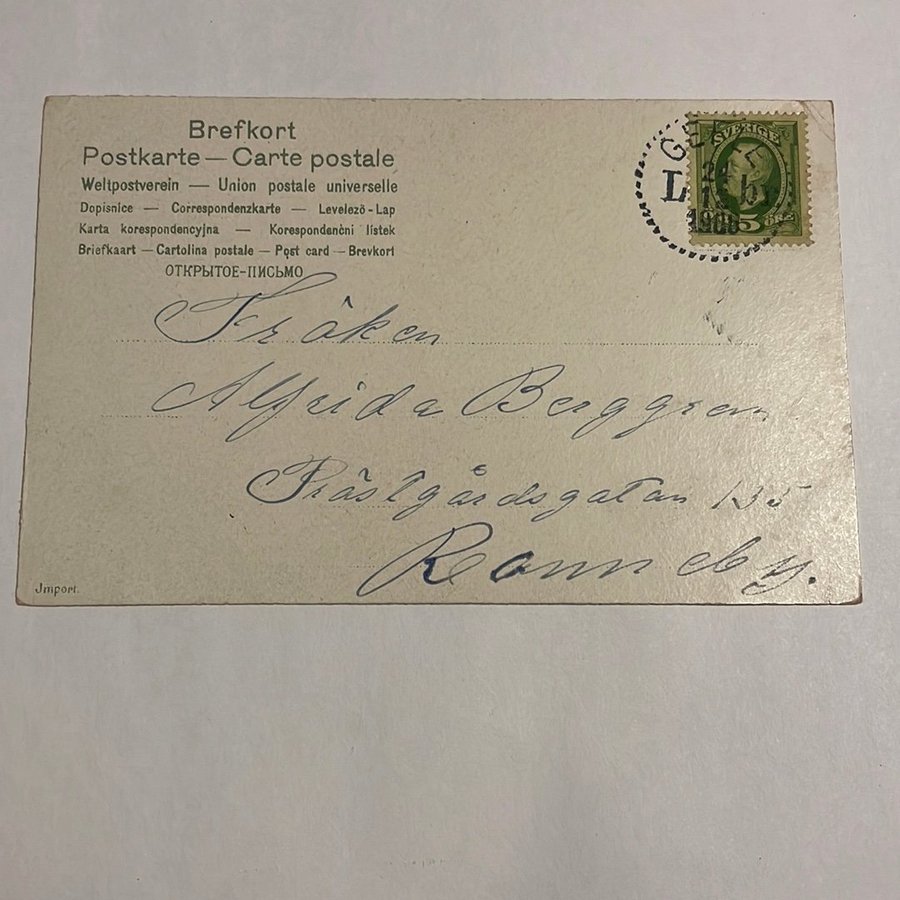 Brefkort
Postkarte — Carte postale
Weltpostverein — Union postale universelle
Dopisnice — Correspondenzkarte — Levelező-Lap
Karta korespondencyjna — Korespondenční lístek
Briefkaart — Cartolina postale — Post card — Brevkort
ОТКРЫТОЕ-ПИСЬМО
SVERIGE
5 ÖRE
Fröken
Alfrida Berggren
Prästgårdsgatan 135
Ronneby.
Jmport.